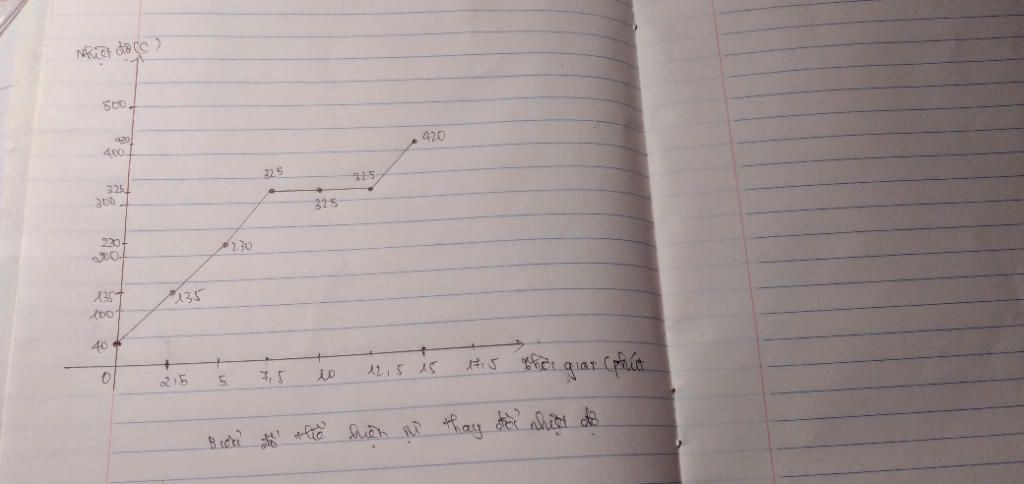 Nhiệt độ (C)
500
420
400
325
300
230
200
135
100
40
0
135
230
325
325
325
420
2,5 5 7,5 10 12,5 15 17,5 thời gian (phút
Biểu đồ thể hiện sự thay đổi nhiệt độ